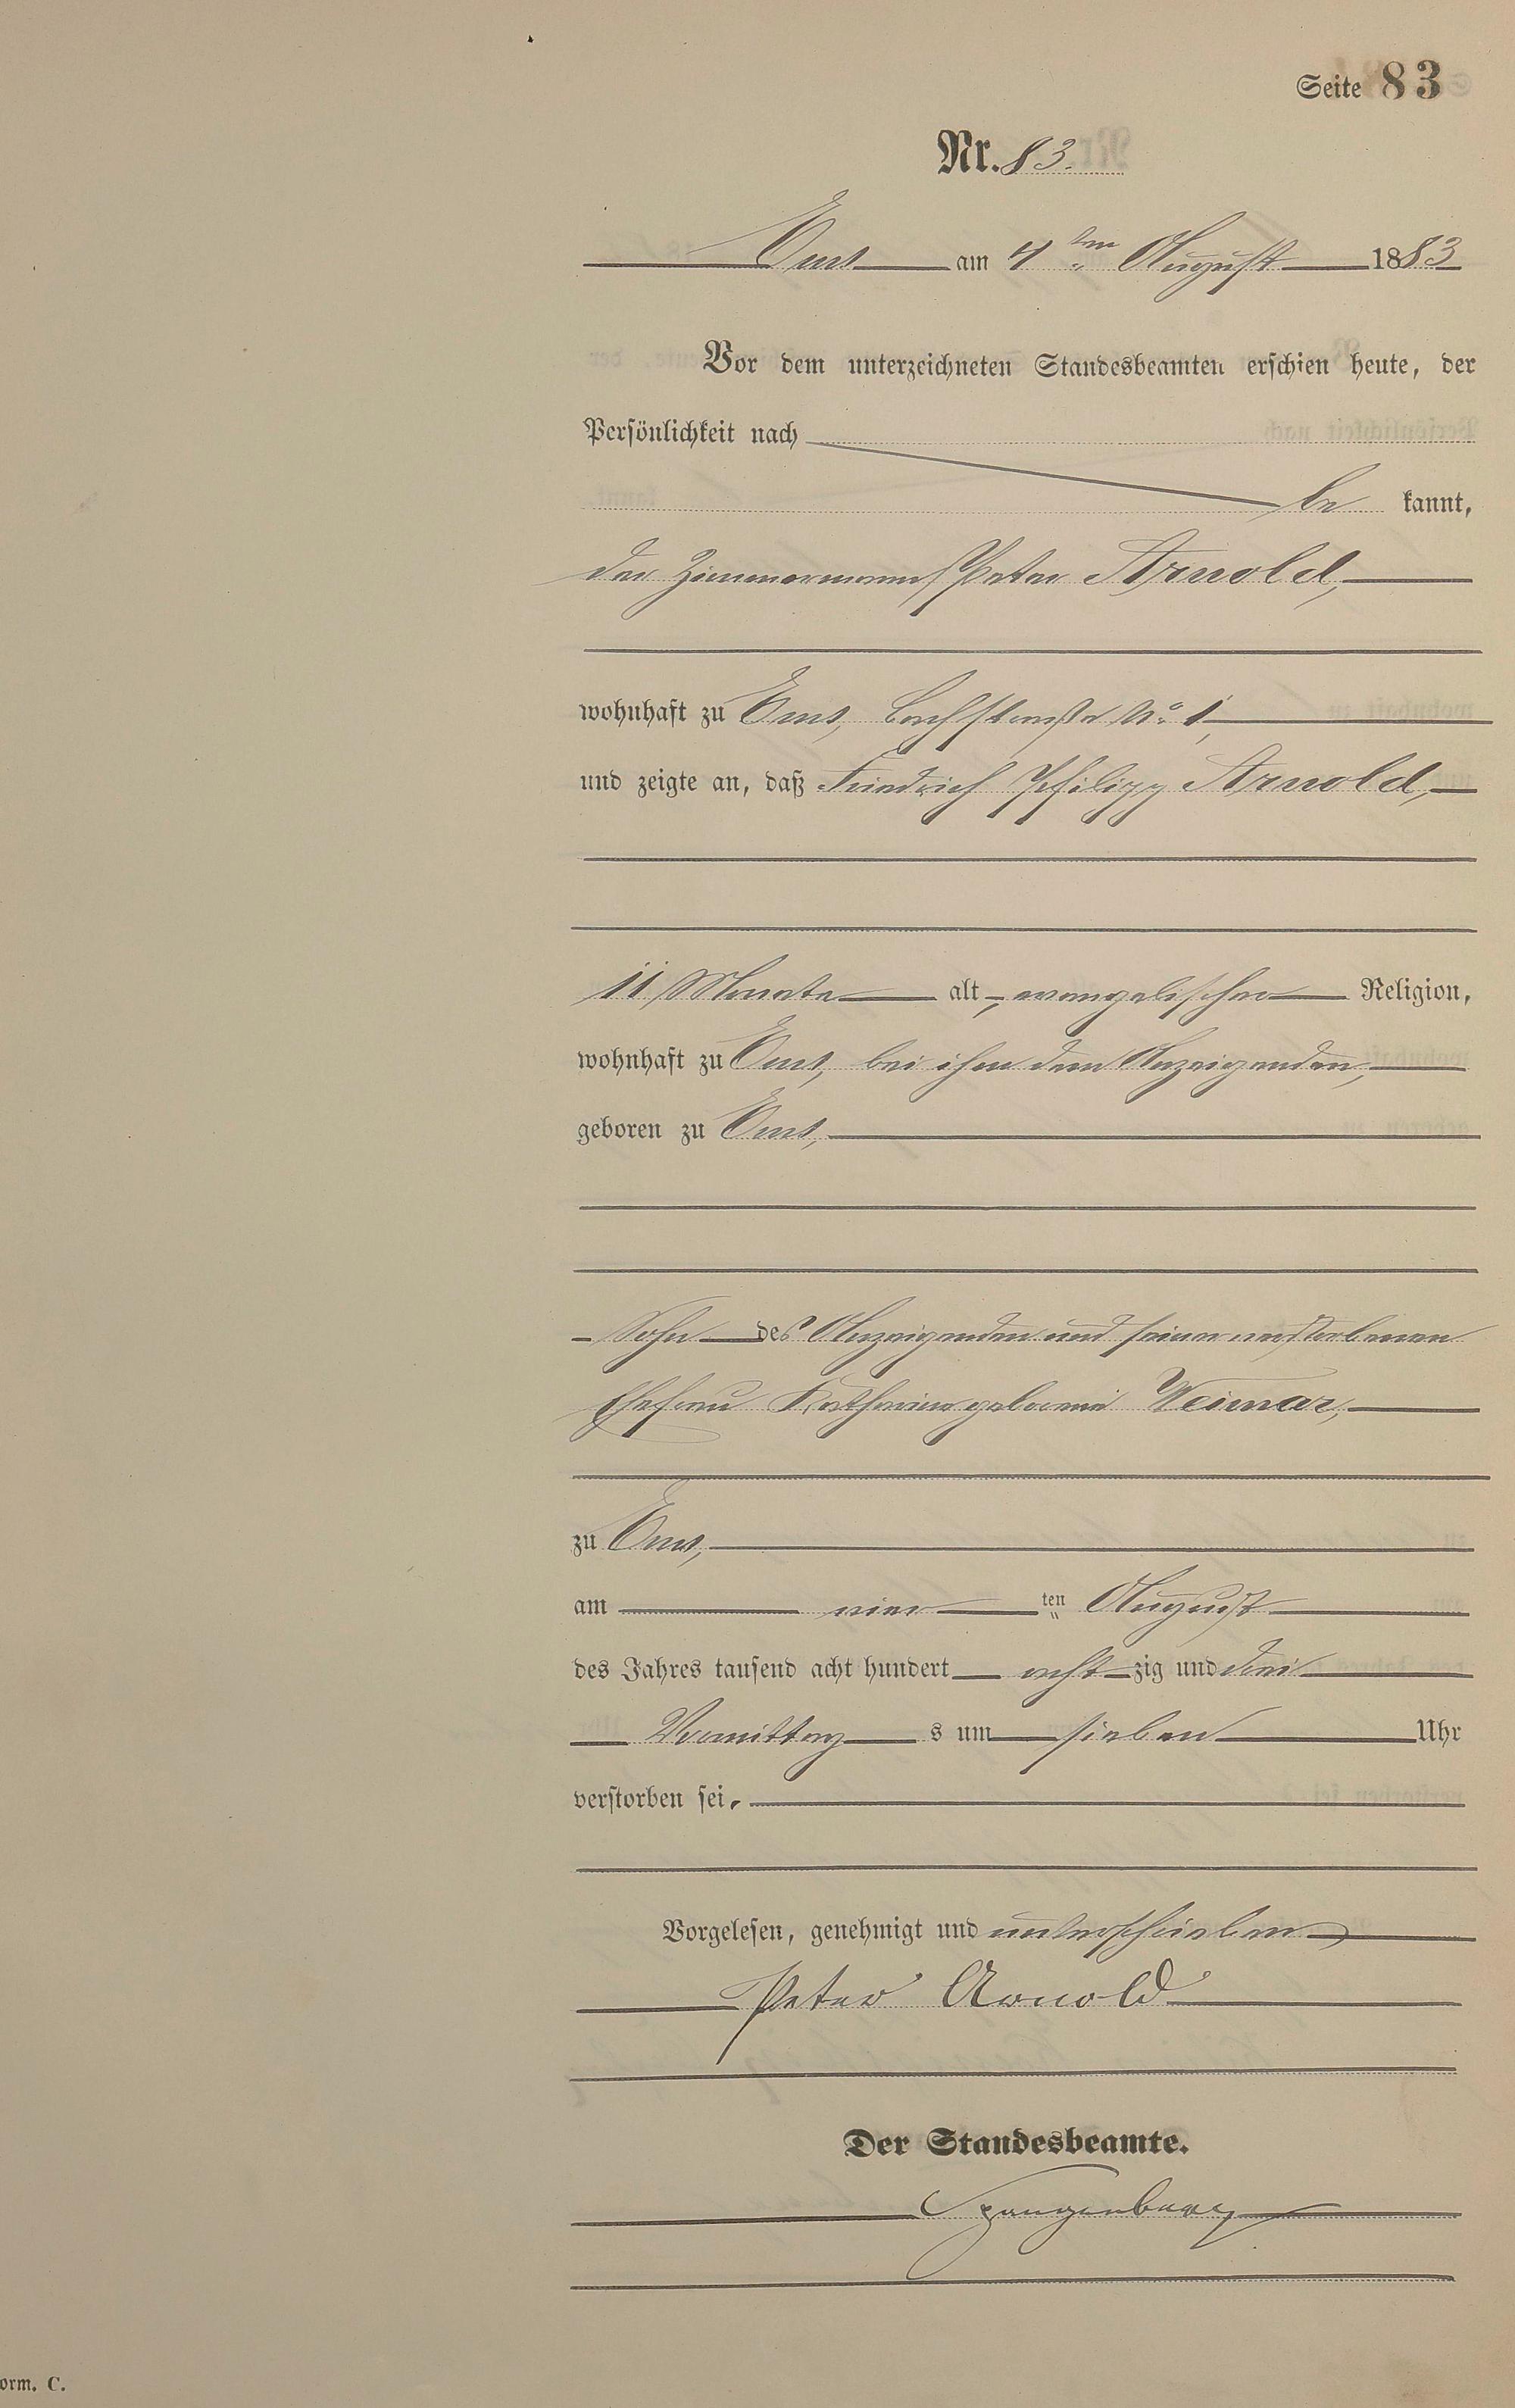 Seite 83
Nr. 83.
Ems am 4ten August 1883
Vor dem unterzeichneten Standesbeamten erschien heute, der
Persönlichkeit nach
be kannt,
der Zimmermann Peter Arnold,
wohnhaft zu Ems, Bachstraße No. 1,
und zeigte an, daß Friedrich Philipp Arnold,
11 Monate alt, evangelischer Religion,
wohnhaft zu Ems, bei ihm dem Anzeigenden,
geboren zu Ems,
Sohn des Anzeigenden und seiner verstorbenen
Ehefrau Katharina geborene Weimar,
zu Ems,
am vier ten August
des Jahres tausend acht hundert acht zig und drei
Vormittag s um sieben Uhr
verstorben sei.
Vorgelesen, genehmigt und unterschrieben
Peter Arnold
Der Standesbeamte.
Spangenberg
orm. C.